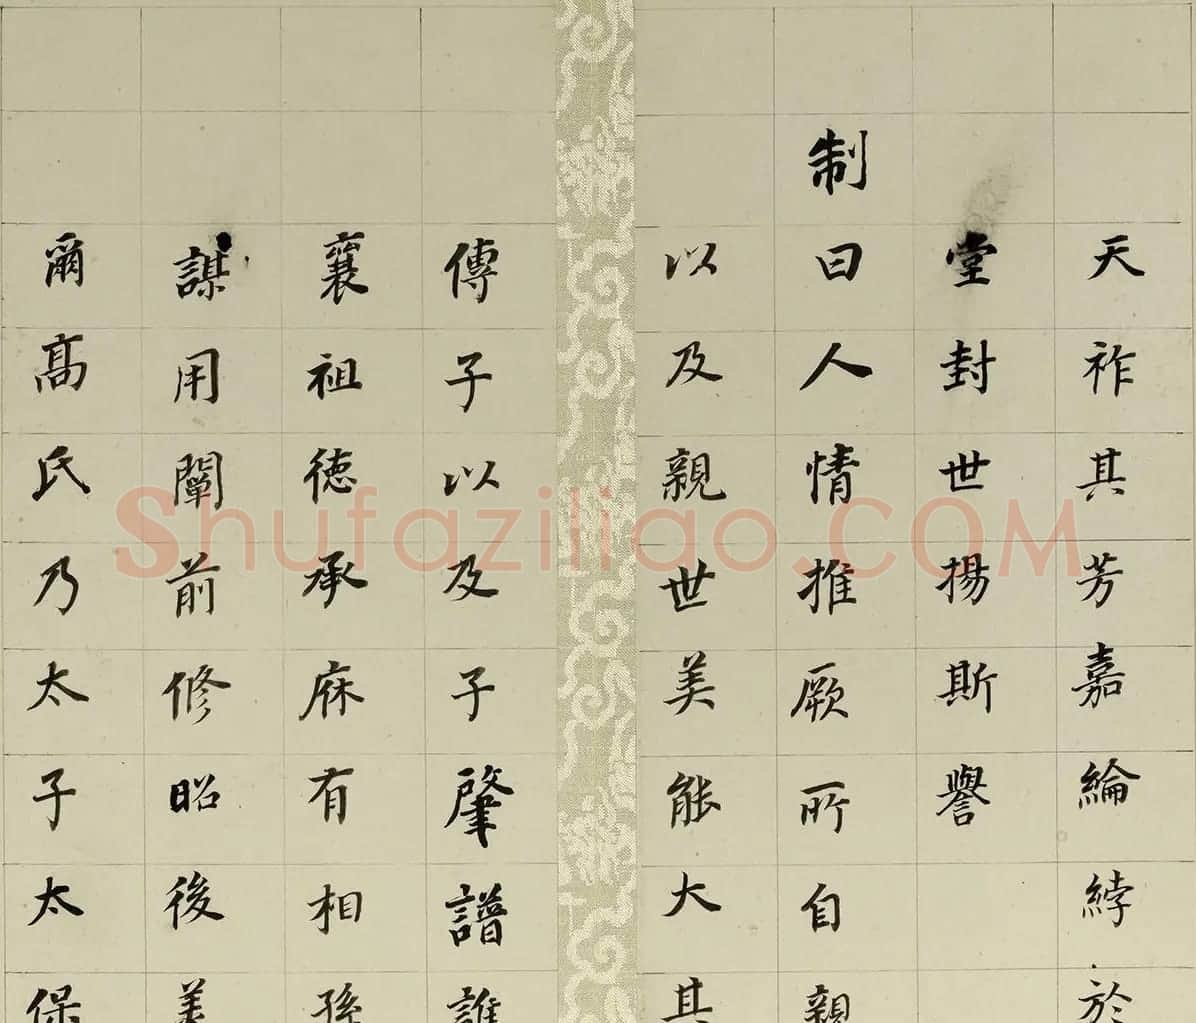 天祚其芳嘉綸綍於
堂封世揚斯譽
制曰人情推厥所自親
以及親世美能大其
傳子以及子肇譜誰
襄祖德承庥有相孫
謀用闡前修昭後美
爾高氏乃太子太保
Shufaziliao.COM